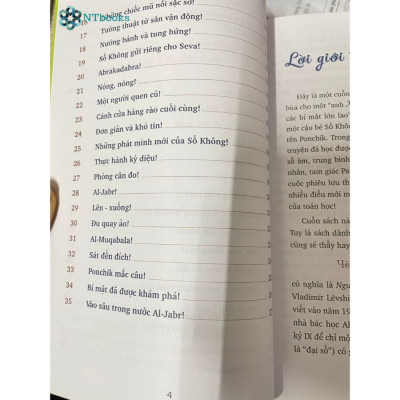 NTbooks
những chiếc mũ nồi sặc sỡ!
17 Tường thuật từ sân vận động!
18 Nướng bánh và tung hứng!
19 Số Không gửi riêng cho Seva!
20 Abrakadabra!
21 Nóng, nóng!
22 Một người quen cũ!
23 Cánh cửa hàng rào cuối cùng!
24 Đơn giản và khó tin!
25 Những phát minh mới của Số Không!
26 Thực hành kỳ diệu!
27 Phòng cân đo!
28 Al-Jabr!
29 Lên - xuống!
30 Đu quay ảo!
31 Al-Muqabala!
32 Sát đến đích!
33 Ponchik mắc câu!
34 Bí mật đã được khám phá!
35 Vào sâu trong nước Al-Jabr!
4
Lời giới
Đây là một cuốn
bùa cho một "anh
các bí mật lớn lao
một cậu bé Số Khô
tên Ponchik. Trong
truyện đã học được
số âm, trung bình
nhân, tam giác Pa
cuộc phiêu lưu th
nhiều điều mới m
của toán học!
Cuốn sách nà
Tuy là sách dành
cũng sẽ thấy hay
có nghĩa là Ngu
Vladimir Lëvshi
viết vào năm 19
nhà bác học Al
kỷ IX để chỉ mộ
là "đại số") có g